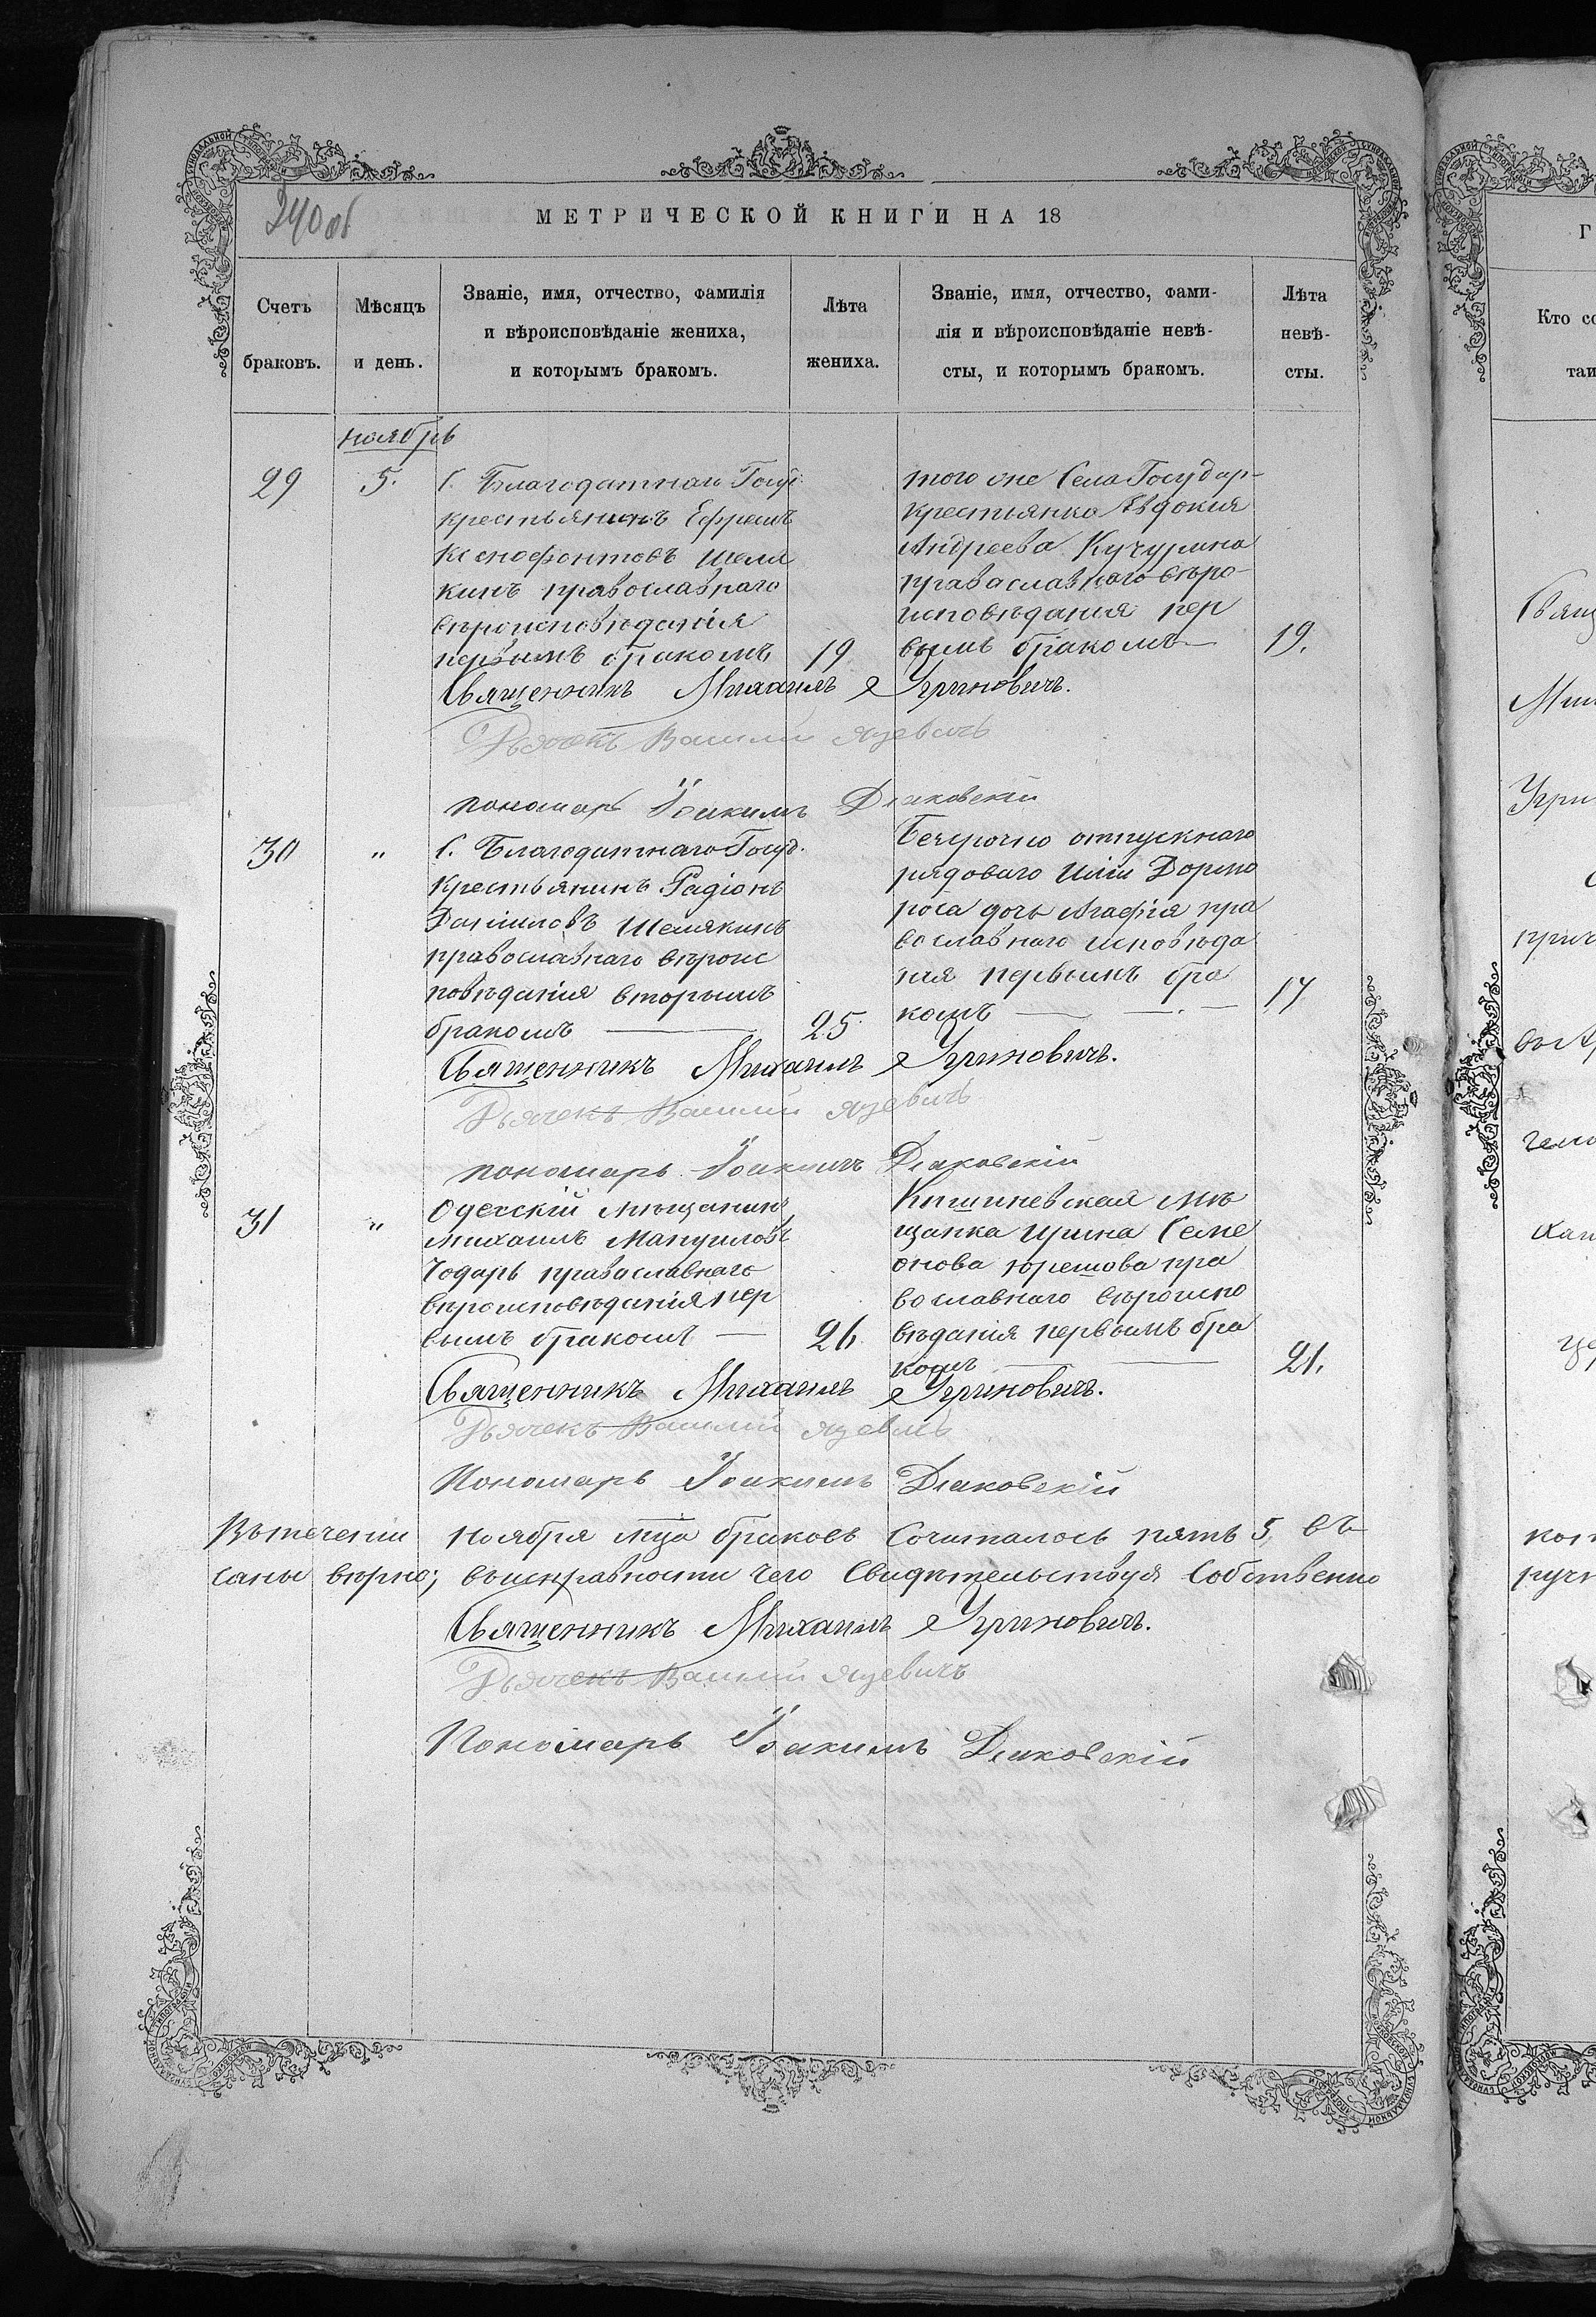 240 об
МЕТРИЧЕСКОЙ КНИГИ НА 18
Счетъ браковъ.
Мѣсяцъ и день.
Званіе, имя, отчество, фамилія
и вѣроисповѣданіе жениха,
и которымъ бракомъ.
Лѣта
жениха.
Званіе, имя, отчество, фами-
лія и вѣроисповѣданіе невѣ-
сты, и которымъ бракомъ.
Лѣта
невѣ-
сты.
ноябрь
29
5.
С. Благодатнаго Госуд.
крестьянинъ Ефремъ
Ксенофонтовъ Шеля
кинъ православнаго
вѣроисповѣданія
первымъ бракомъ
19
того же Села Государ-
крестьянка Евдокия
Андреева Кучурина
православнаго вѣро-
исповѣдания пер
вымъ бракомъ—
19.
Священникъ Михаилъ Угриновичъ.
Дьячекъ Василий Язевичъ
пономарь Іоакимъ Дляковскій
30
"
С. Благодатнаго Госуд.
Крестьянинъ Радіонъ
Даниловъ Шемякинъ
православнаго вѣроис
повѣданія вторымъ
бракомъ —
25.
Безсрочно отпускнаго
рядоваго Иліи Дормо
роса дочь Агафія пра
вославнаго исповѣда
ния первымъ бра
комъ — —
17
Священникъ Михаилъ Угриновичъ.
Дьячекъ Василий Язевичъ
пономарь Іоакимъ Дляковскій
31
"
Одесскій мѣщанинъ
михаилъ Мануиловъ
Чодарь православнаго
вѣроисповѣданія пер
вымъ бракомъ —
26
Кишиневская мѣ
щанка Ирина Семе
онова Юрешова пра
вославнаго вѣроиспо
вѣданія первымъ бра
комъ — —
21.
Священникъ Михаилъ Угриновичъ.
Дьячекъ Василий Язевичъ
Пономарь Іоакимъ Дляковскій
Втеченіи Ноября мца браковъ Сочиталось пять 5, въ
саны вѣрно; въисправности чего Свидѣтельствуя Собственно
Священникъ Михаилъ Угриновичъ.
Дьячекъ Василий Язевичъ
Пономарь Іоакимъ Дляковскій
Г
Кто со
таи
Свящ
Мих
Угри
прич
гели
ручн